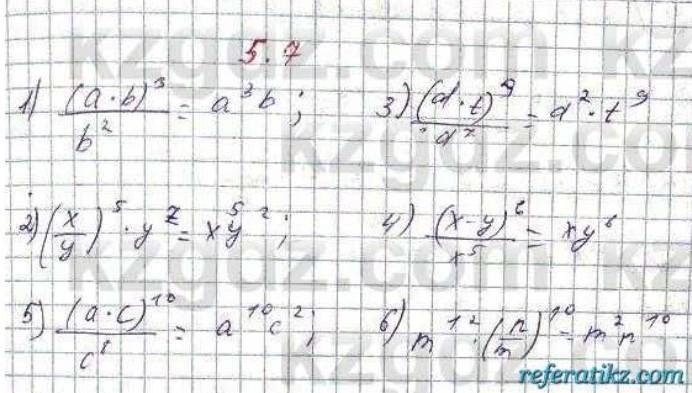 5.7
1) (a·b)³/b² = a³b; 3) (d·t)⁹/d⁷ = d²·t⁹
2) (x/y)⁵·y⁷ = x⁵y²; 4) (x-y)⁶/x⁵ = xy⁶
5) (a·c)¹⁰/c⁸ = a¹⁰c²; 6) m¹²·(n/m)¹⁰ = m²n¹⁰
referatikz.com